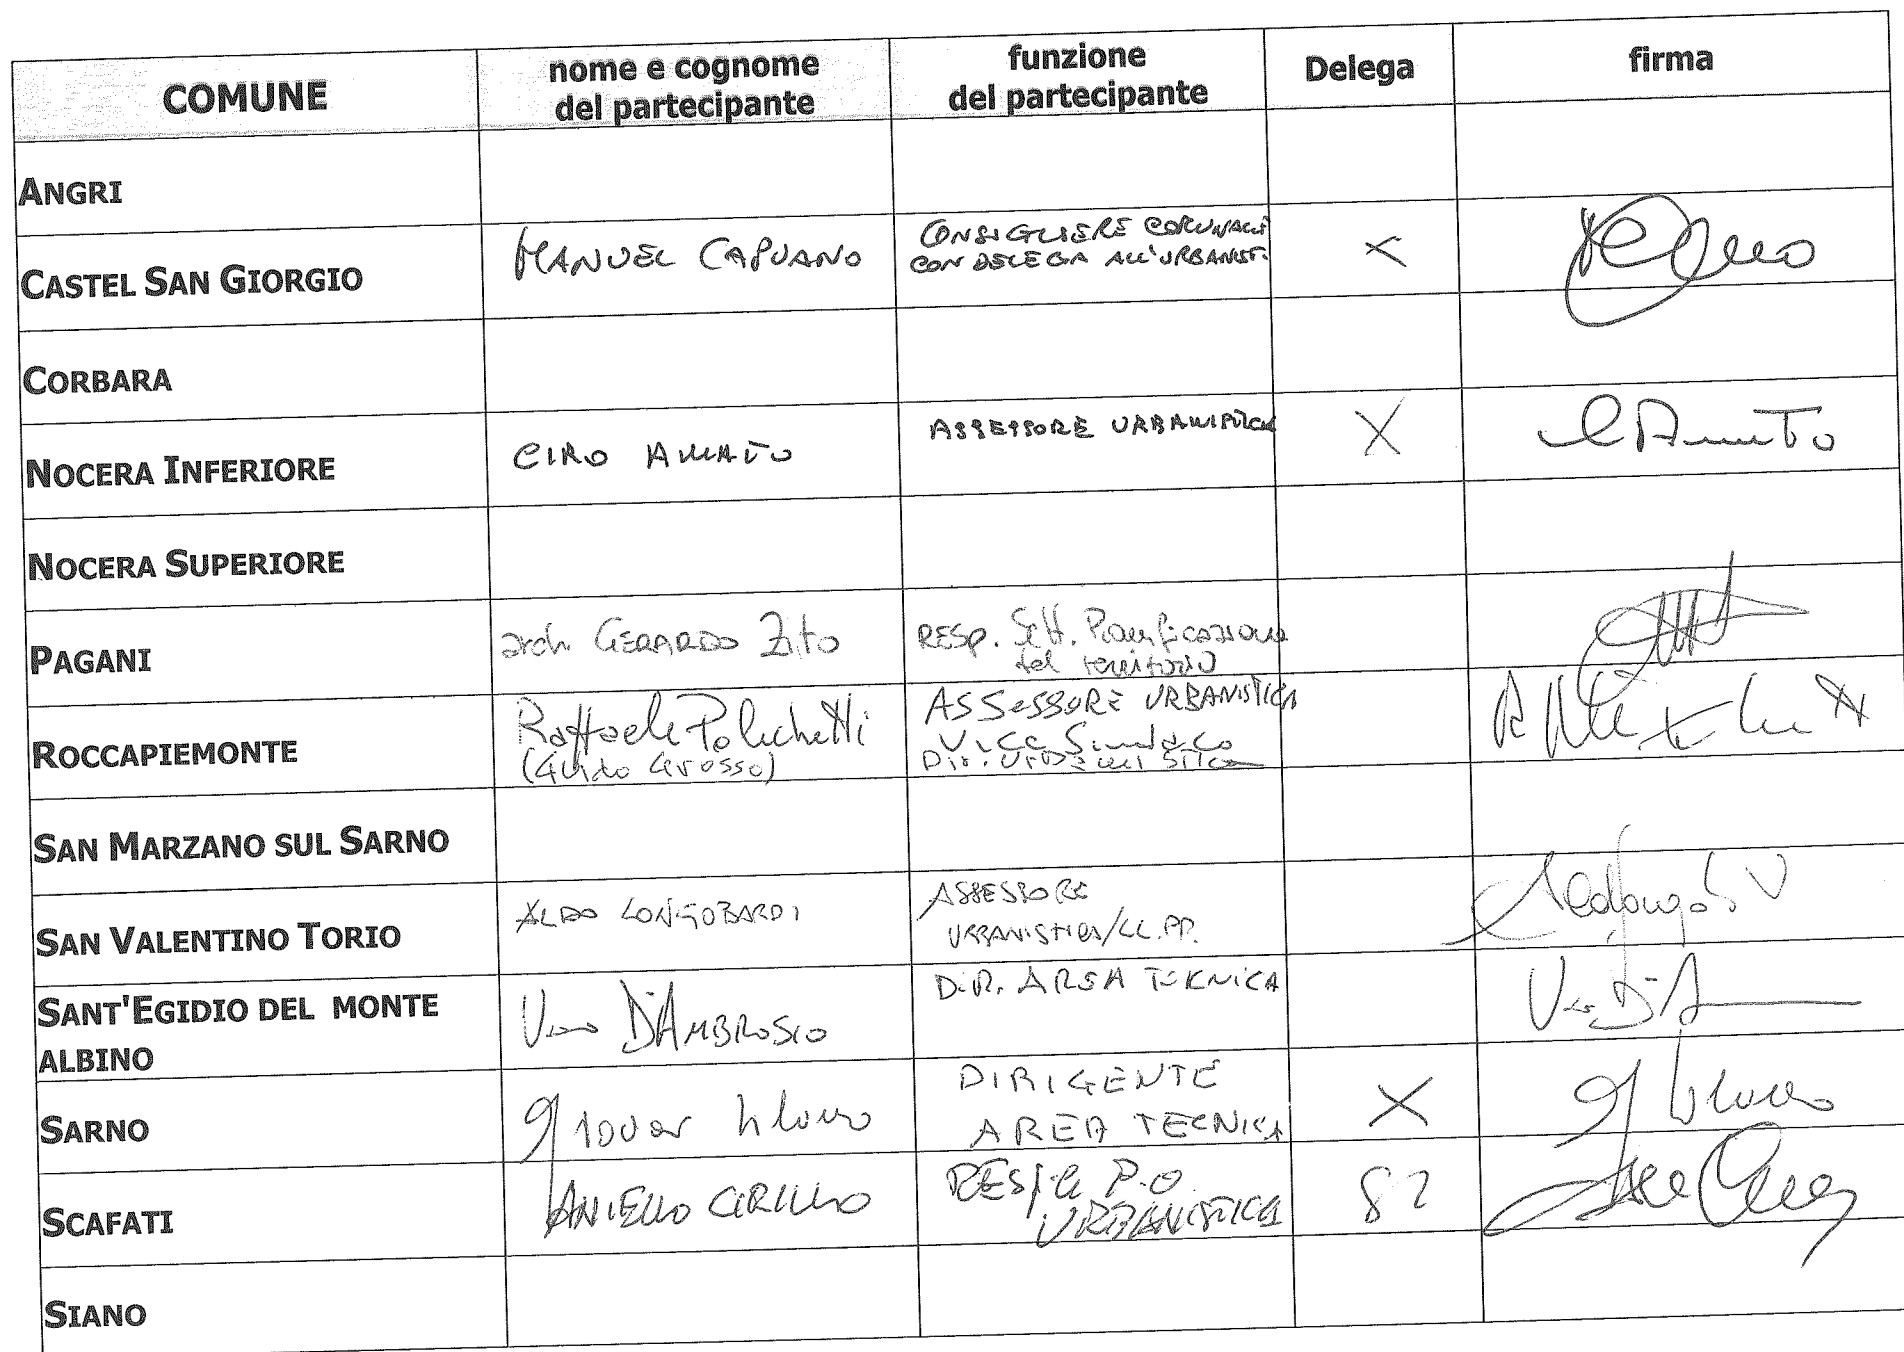 COMUNE
nome e cognome
del partecipante
funzione
del partecipante
Delega
firma
ANGRI
CASTEL SAN GIORGIO
MANUEL CAPUANO
CONSIGLIERE COMUNALE
CON DELEGA ALL'URBANIST.
X
CORBARA
NOCERA INFERIORE
CIRO AMATO
ASSESSORE URBANISTICA
X
C Amato
NOCERA SUPERIORE
PAGANI
arch. GERARDO Zito
RESP. Sett. Pianificazione
del territorio
ROCCAPIEMONTE
Raffaele Polichetti
(Guido Grosso)
ASSESSORE URBANISTICA
Vice Sindaco
Dir. Urbanistica
SAN MARZANO SUL SARNO
SAN VALENTINO TORIO
ALDO LONGOBARDI
ASSESSORE
URBANISTICA/LL.PP.
SANT'EGIDIO DEL MONTE
ALBINO
D'AMBROSIO
DIR. AREA TECNICA
SARNO
DIRIGENTE
AREA TECNICA
X
SCAFATI
ANIELLO CIRILLO
P.O.
URBANISTICA
SIANO